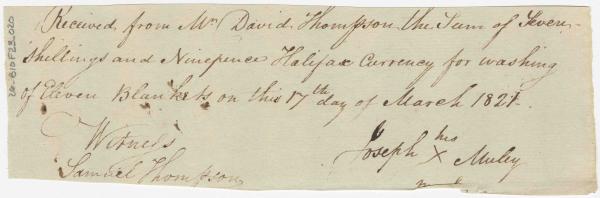 Received from Mr. David Thompson the Sum of Seven
Shillings and Ninepence Halifax Currency for washing
of Eleven Blankets on this 17th day of March 1821.
Witness
Samuel Thompson
his
Joseph X Muley